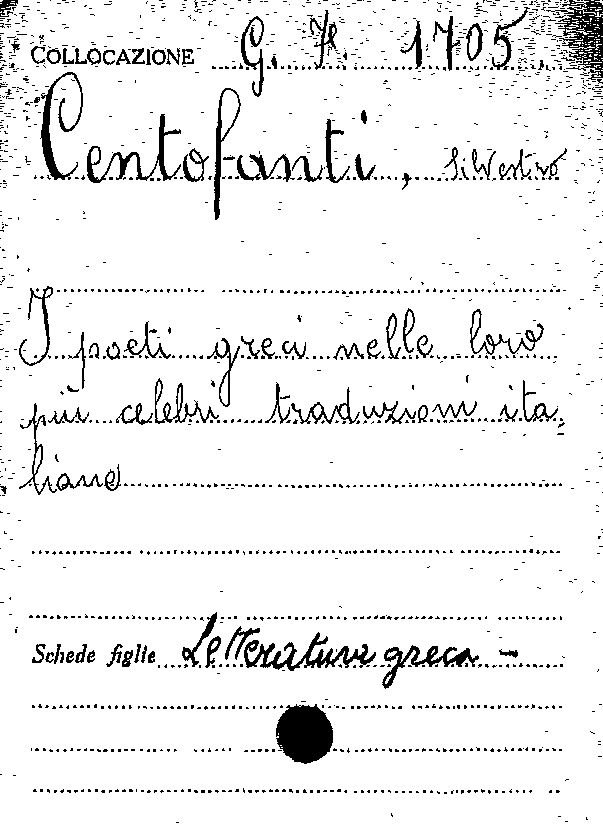 COLLOCAZIONE G. H. 1705
Centofanti, Silvestro
I poeti greci nelle loro
più celebri traduzioni ita-
liane
Schede figlie Letteratura greca -